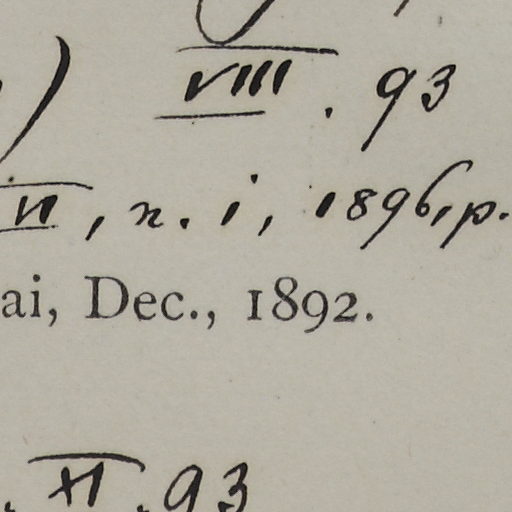 ) VIII. 93
VI, n. i, 1896, p.
ai, Dec., 1892.
. XI. 93